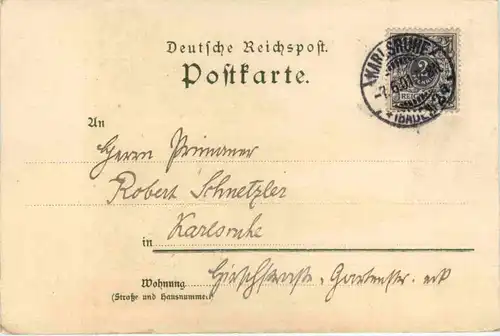 Deutsche Reichspost.
Postkarte.
KARLSRUHE
(BADEN)
2
REICHSPOST
An
Herrn Primaner
Robert Schnetzler
Karlsruhe
in
Wohnung Hirschstrasse, Gartenstr. eck
(Straße und Hausnummer.)